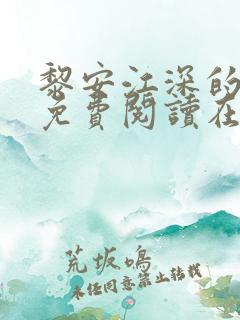 黎安江深的
免費閱讀在
荒坂鳴
未经同意禁止转载